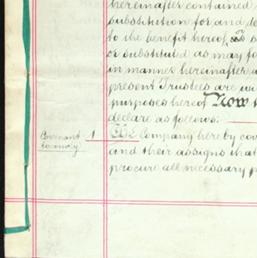 hereinafter contained
substitution for and
to the benefit hereof
or substituted as may
in manner hereinafter
present Trustees are
purposes hereof Now
declare as follows:
Covenant 1 The Company hereby
and their assigns that
procure all necessary